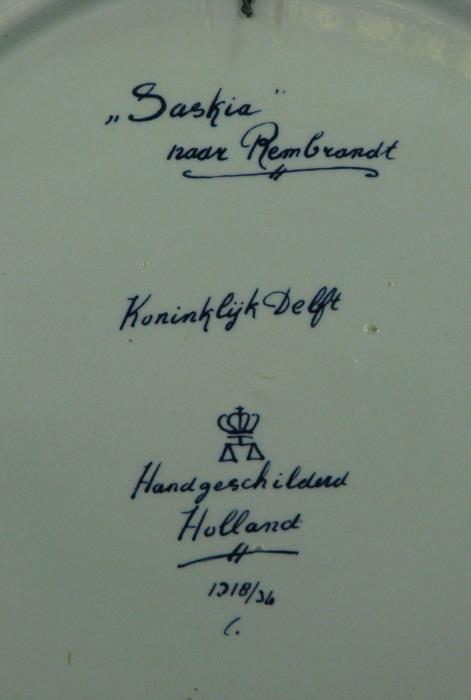 „Saskia"
naar Rembrandt
Koninklijk Delft
Handgeschilderd
Holland
1318/36
C.